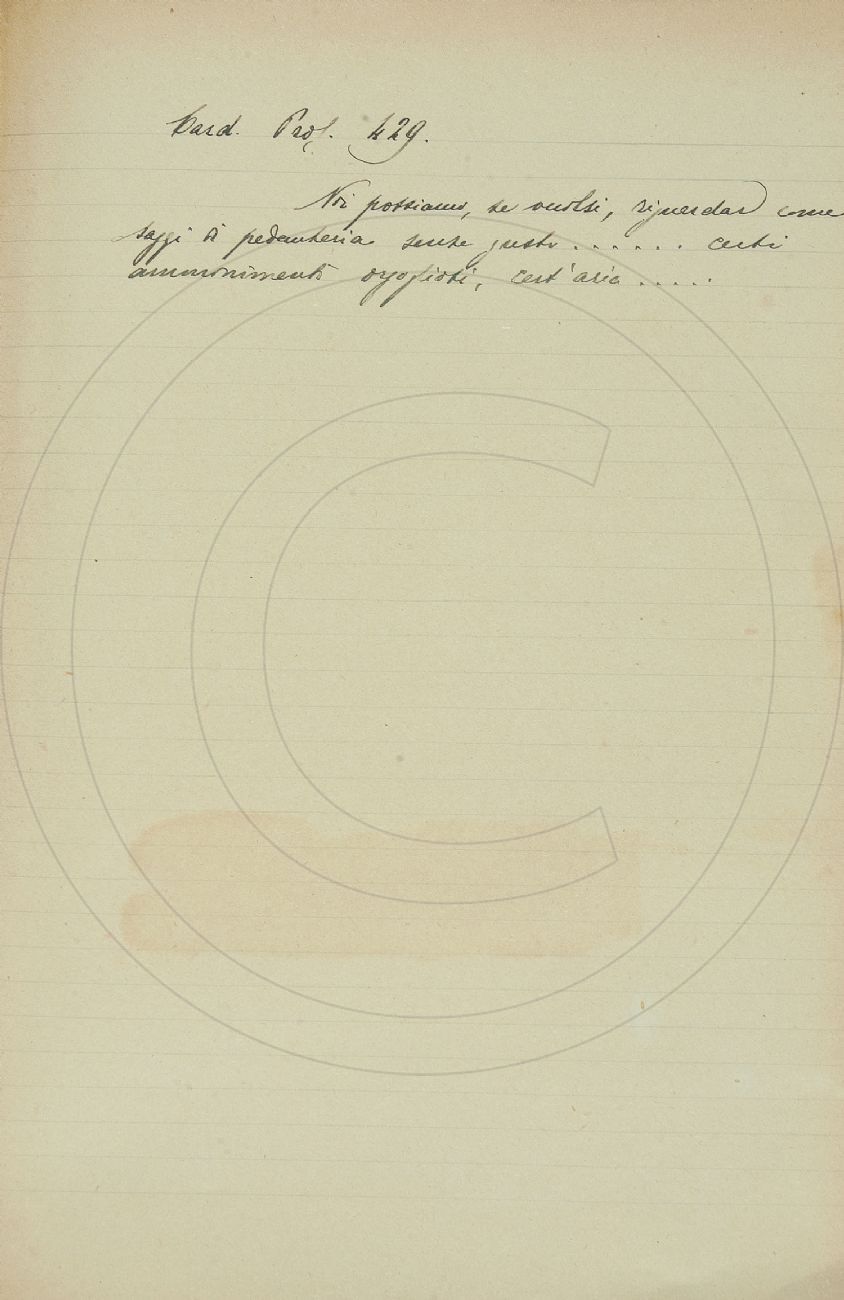 Card. Pros. 429.
Noi possiamo, se vuolsi, riguardar come
saggi di pedanteria senza gusto ...... certi
ammonimenti orgogliosi, cert'aria .....